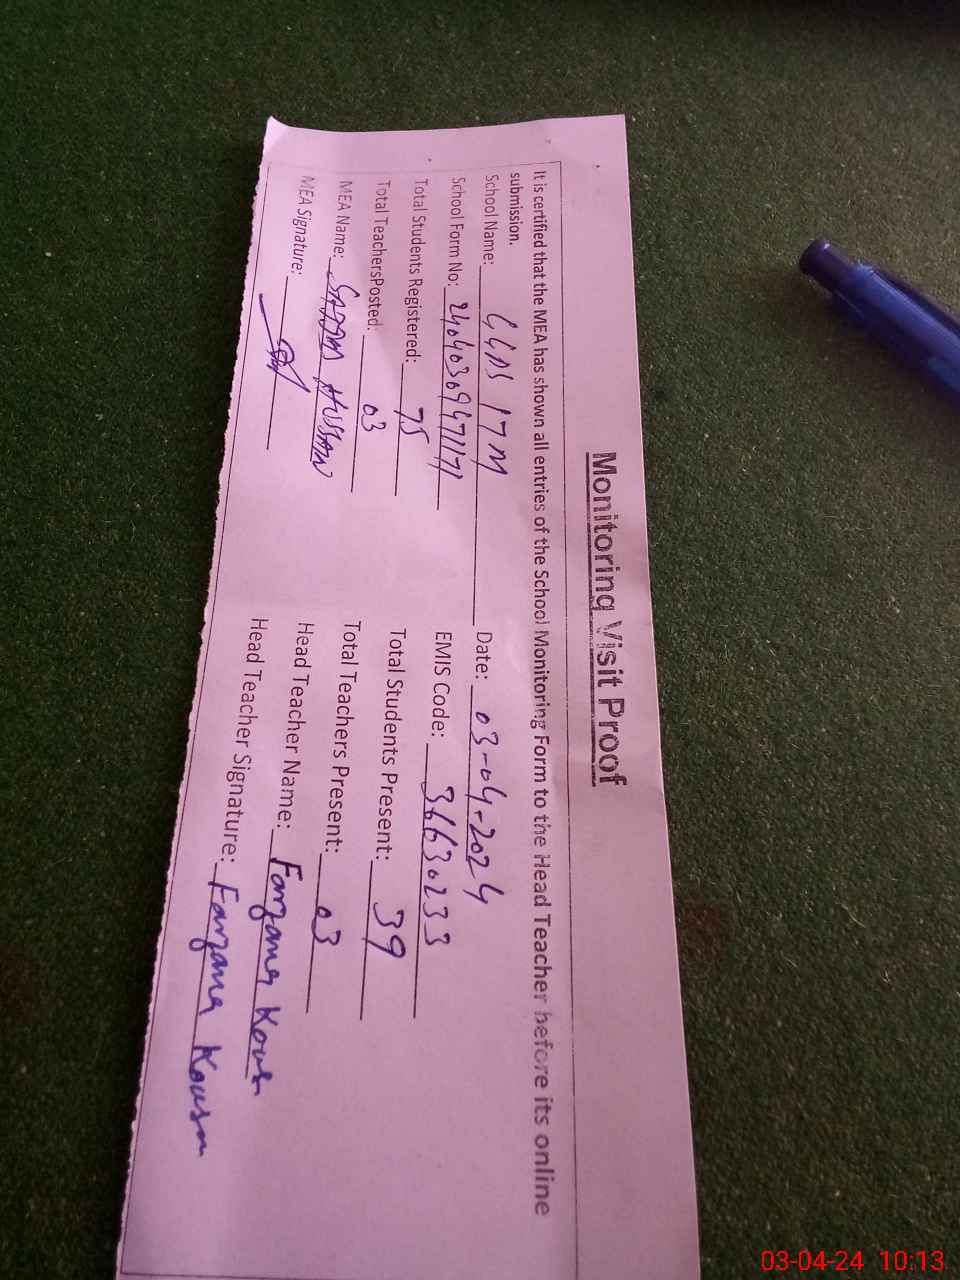 Monitoring Visit Proof
It is certified that the MEA has shown all entries of the School Monitoring Form to the Head Teacher before its online
submission.
School Name: 17M Date: 03-04-2024
School Form No: EMIS Code: 36630233
Total Students Registered: 75 Total Students Present: 39
Total TeachersPosted: 03 Total Teachers Present: 03
MEA Name: HUSSAIN Head Teacher Name: Farzana
MEA Signature: Head Teacher Signature: Farzana
03-04-24 10:13